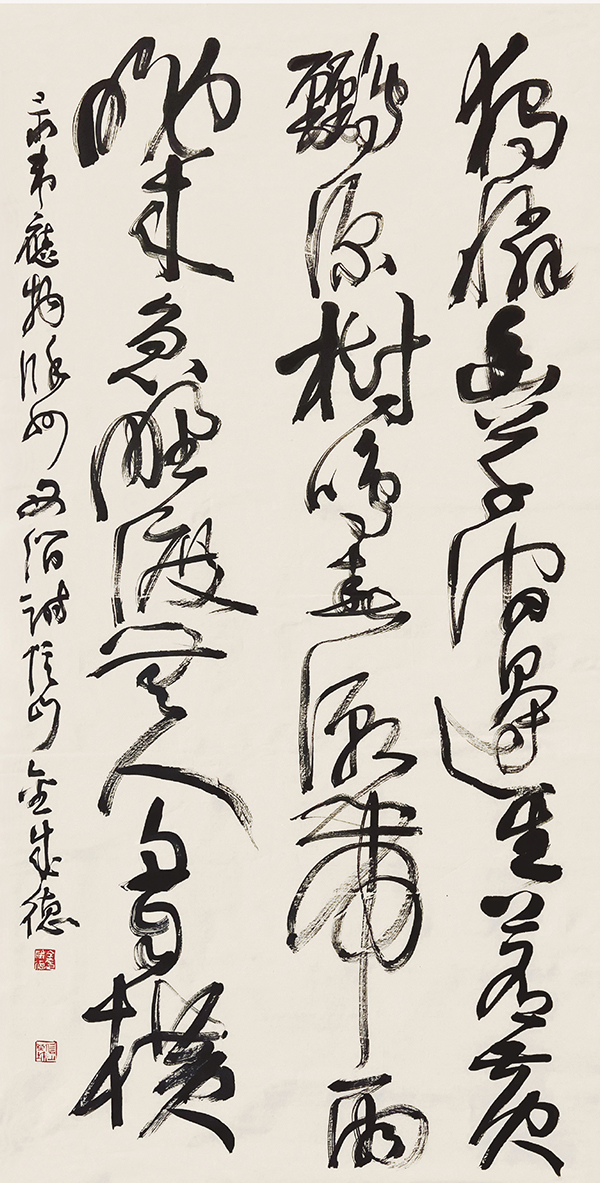 獨憐幽草澗邊生上有黃
鸝深樹鳴春潮帶雨
晚來急野渡無人舟自橫
韋應物滁州西澗詩 山金成德